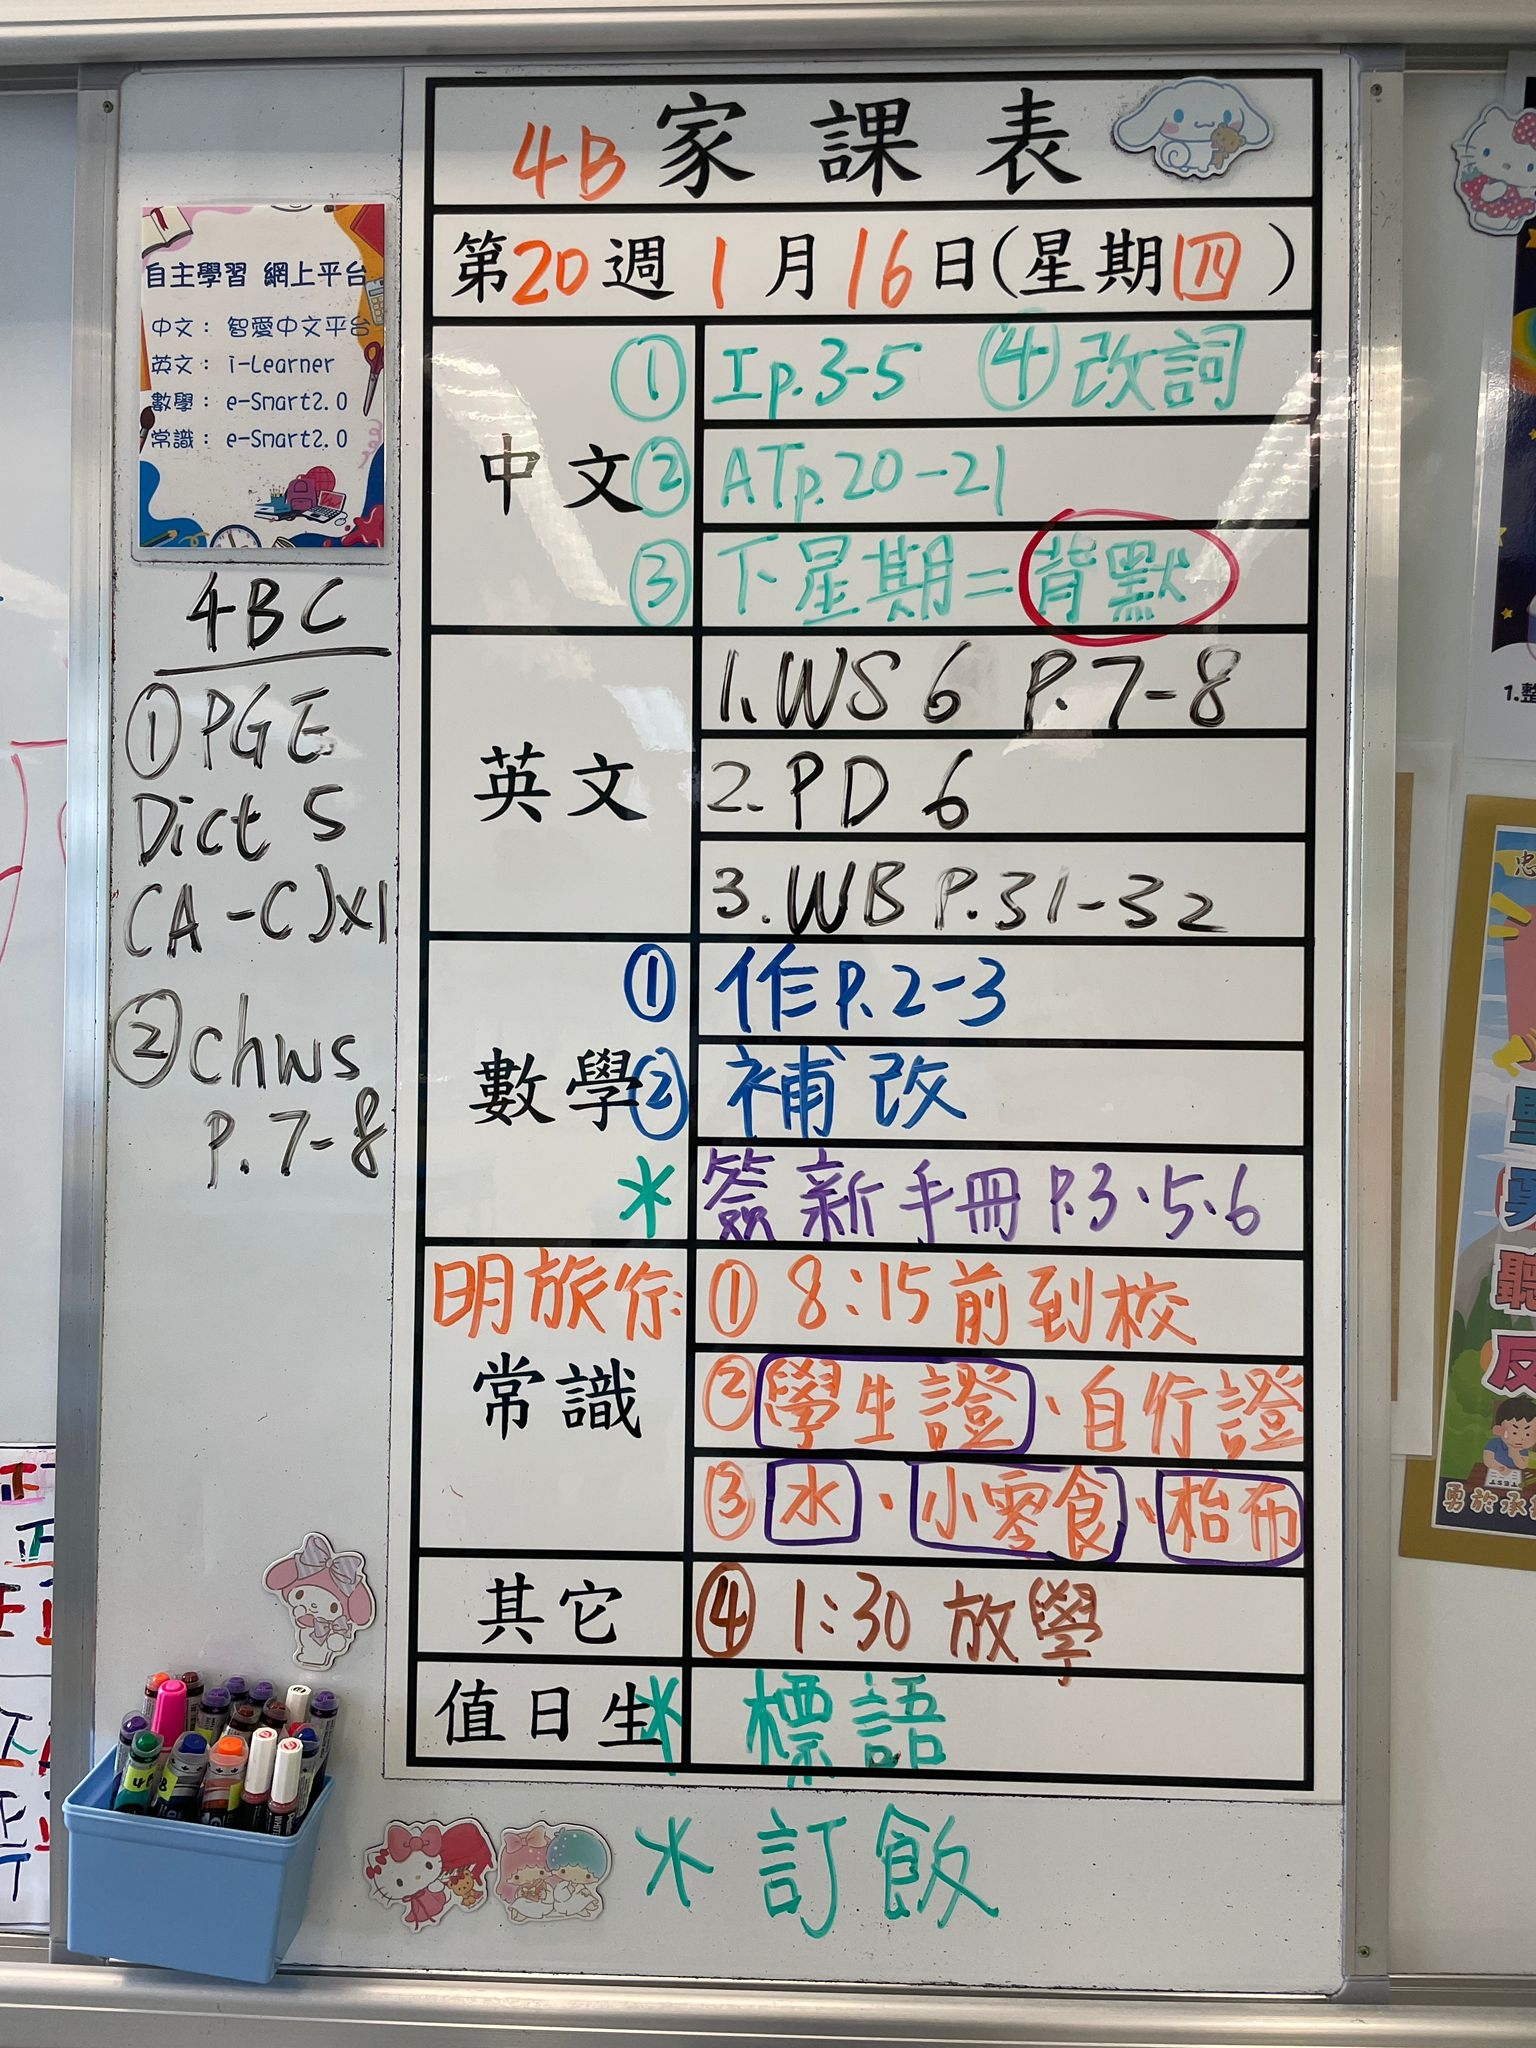 4B 家課表
第20週 1月16日(星期四)
自主學習 網上平台
中文： 智愛中文平台
英文： i-Learner
數學： e-Smart2.0
常識： e-Smart2.0
4BC
① PGE
Dict 5
(A-C)x1
② chws
P.7-8
中文
① 工p.3-5 ④ 改詞
② ATp.20-21
③ 下星期=背默
英文
1. WS 6 P.7-8
2. PD 6
3. WB P.31-32
數學
① 作P.2-3
② 補改
* 簽新手冊 P.3、5、6
明旅行:
常識
① 8:15前到校
② 學生證、自行證
③ 水、小零食、枱布
其它
④ 1:30 放學
值日生
* 標語
* 訂飯
1.整
忠
聽
反
勇於承